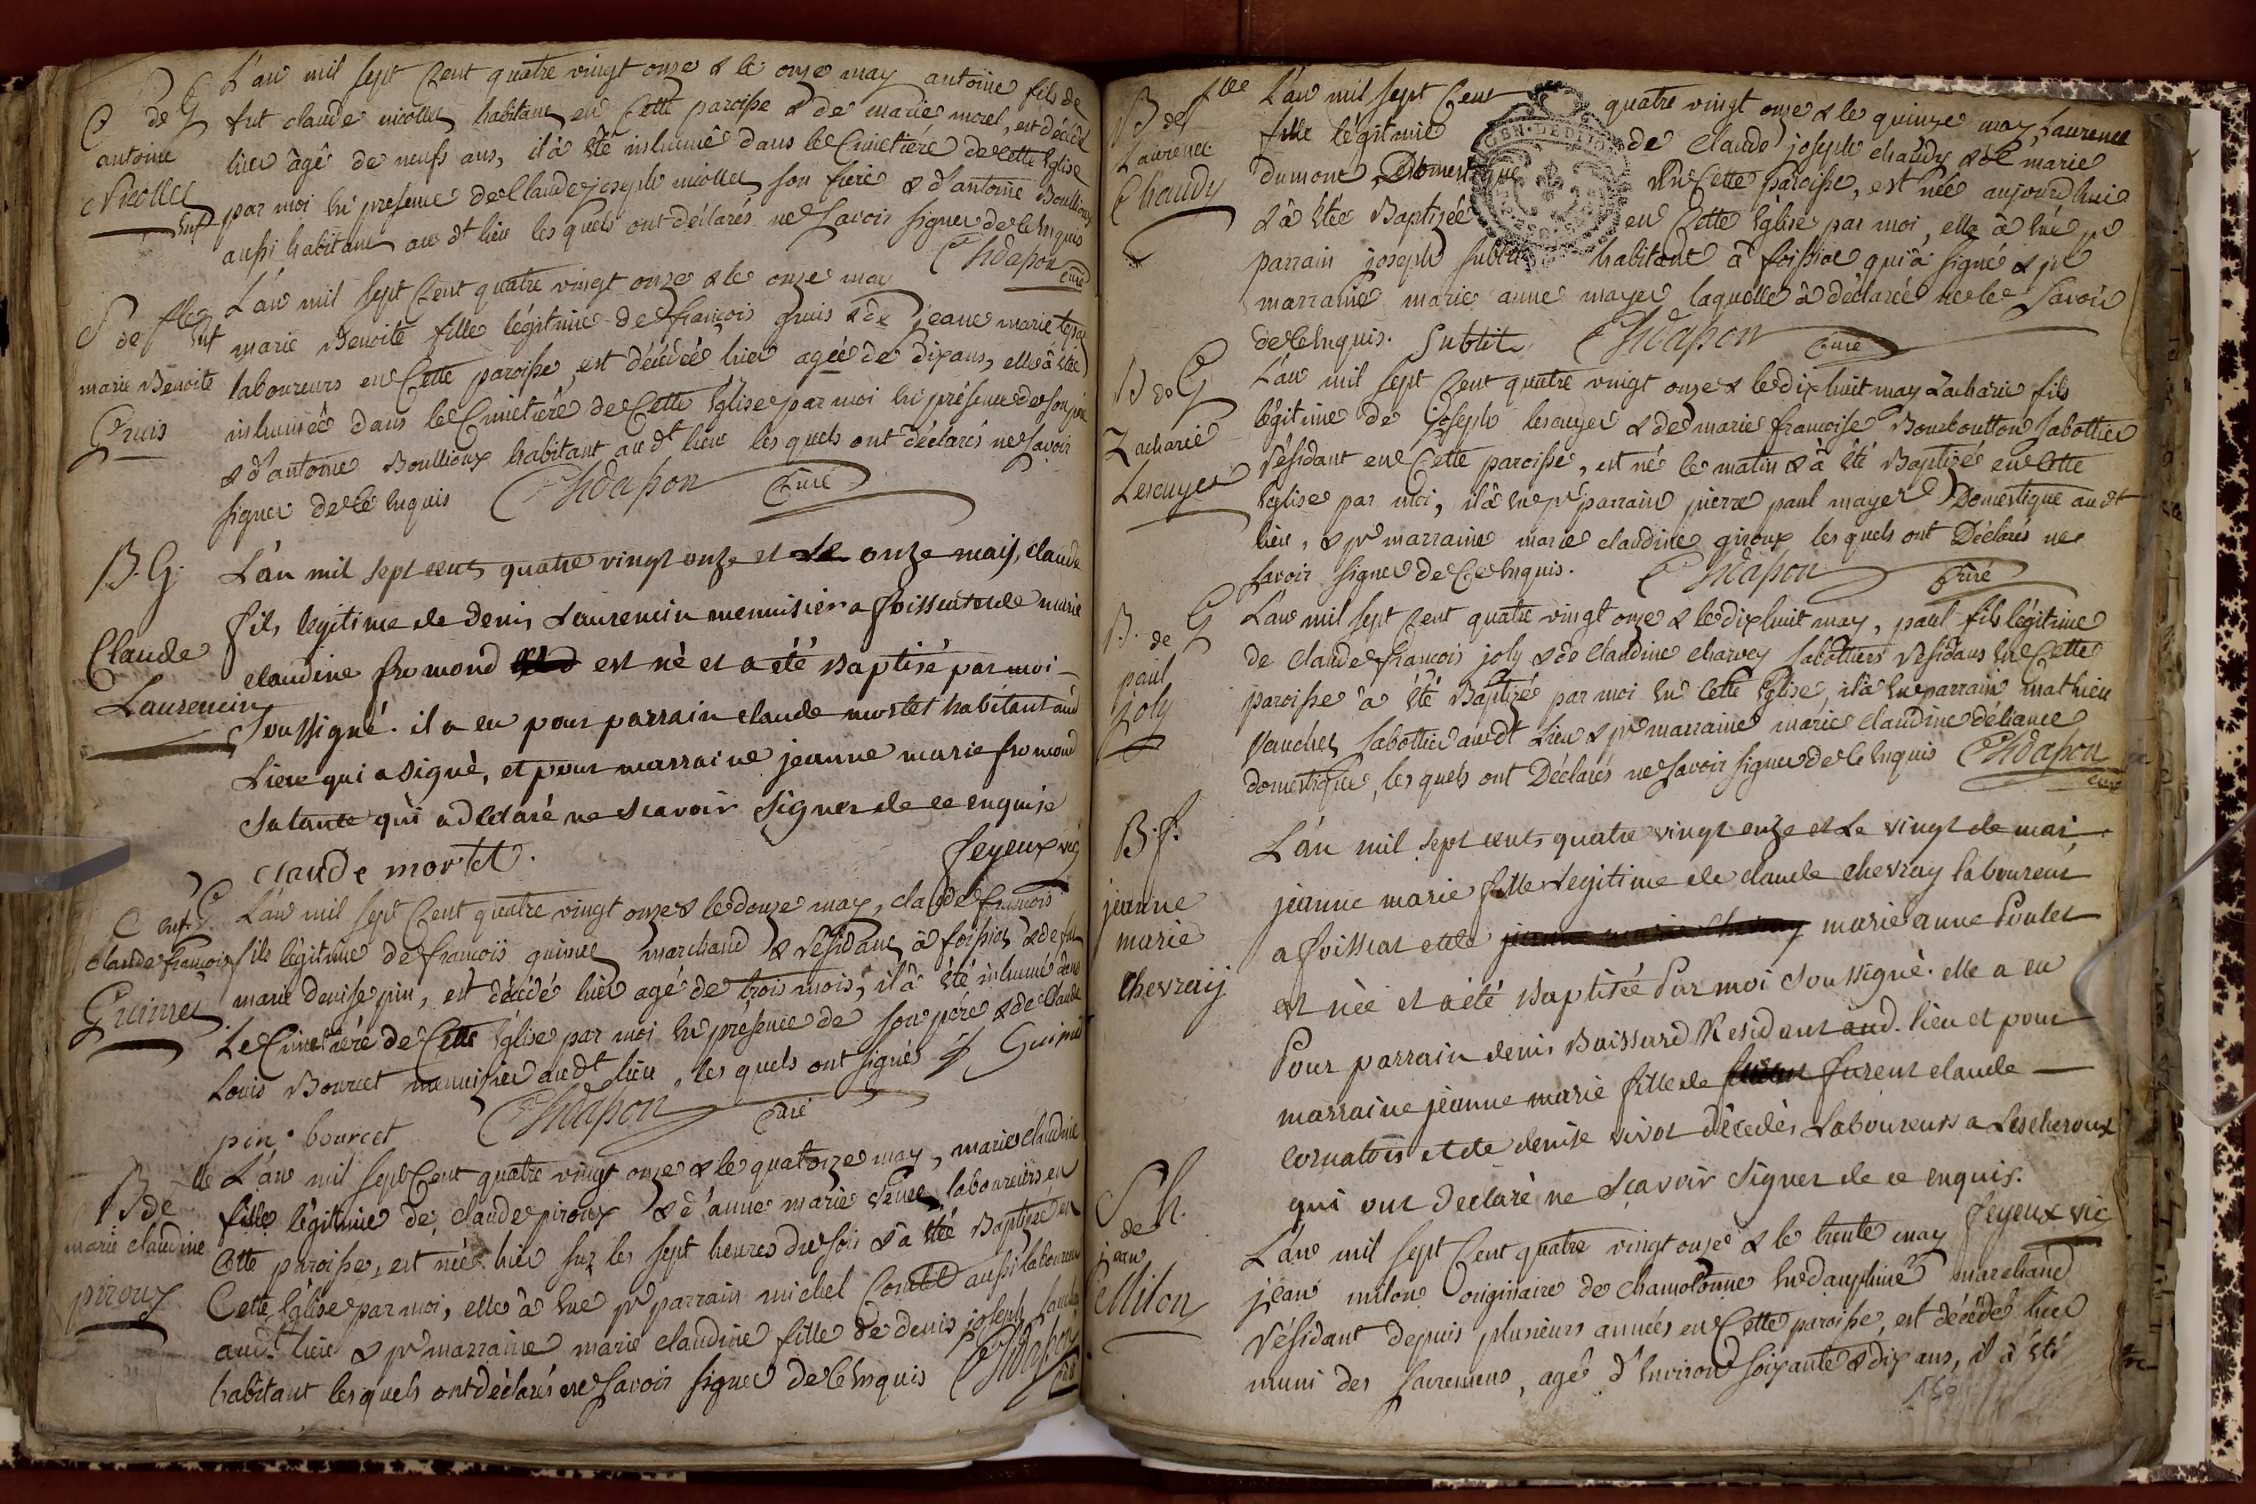 C de G
antoine
Nicollet
enf
L'an mil sept Cent quatre vingt onze & le onze may antoine fils de
fut claude nicollet habitant en Cette paroisse & de marie morel, est décédé
hier âgé de neufs ans, il à été inhumé dans le Cimetiére de cette Eglise
par moi En presence de Claude joseph nicollet son frere & d'antoine Boullioux
aussi habitant au dt lieu les quels ont déclarés ne Savoir signer de Ce Enquis
Chdapon curé
S de flle
Ent
marie Benoite
Gruis
L'an mil sept Cent quatre vingt onze & le onze may
marie Benoite fille légitime de françois gruis & de jeane marie
laboureurs en Cette paroisse, est décédée hier agée de dix ans, elle à été
inhumée dans le Cimetiére de Cette Eglise par moi En présence de son pére
& d'antoine Boullioux habitant au dt lieu les quels ont déclarés ne Savoir
signer de Ce Enquis Chdapon Curé
B. G.
Claude
Laurencin
L'an mil sept cent quatre vingt onze et Le onze maij, claude
fils legitime de denis Laurencin mennisier a foissiat et de marie
claudine fromond est né et a été Baptisé par moi
Soussigné. il a eu pour parrain claude mortet habitant aud
Lieu qui a signé, et pour marraine jeanne marie fromond
sa tante qui a déclaré ne scavoir signer de ce enquise
claude mortet. feyeux vic
C enf. G
claude françois
Guimet
L'an mil sept Cent quatre vingt onze & le douze may, claude françois
fils légitime de françois guimet marchand & Résidant à foissiat & de fut
marie denise pin, est décédé hier agé de trois mois, il à été inhumé dans
Le Cimetiére de Cette Eglise par moi En présence de son pére & de Claude
Louis Bourcet mennisier au dt lieu, les quels ont signés f Guimet
pin. bourcet Chdapon Curé
B de lle
marie claudine
piroux
L'an mil sept Cent quatre vingt onze & le quatorze may, marie claudine
fille légitime de claude piroux & d'anne marie laboureurs en
Cette paroisse, est née hier sur les sept heures du soir & à été Baptizée en
Cette Eglise par moi, elle à Eue pr parrain michel Contet aussi laboureur
audt lieu & pr marraine marie claudine fille de denis joseph
habitant les quels ont déclarés ne Savoir signer de Ce Enquis Chdapon curé
B de flle
Laurence
Chaudy
L'an mil sept Cent quatre vingt onze & le quinze may Laurence
fille légitime de Claude joseph chaudy & de marie
dumont Domestique En Cette paroisse, est née aujourd'huit
& à été Baptizée en Cette Eglise par moi, elle à Eue pr
parrain joseph subtil habitant à foissiat qui à signé & pr
marraine marie anne mayer laquelle à déclarée ne le Savoir
de Ce Enquis. Subtil Chdapon Curé
B de G
Zacharie
Lescuyer
L'an mil sept Cent quatre vingt onze & le dix huit may Zacharie fils
légitime de joseph lescuyer & de marie françoise Bourboutton Sabottier
Résidant en Cette paroisse, est né le matin & à été Baptizé en Cette
Eglise par moi, il à Eue pr parrain pierre paul mayer Domestique audt
lieu, & pr marraine marie claudine giroux les quels ont Déclarés ne
Savoir signer de Ce Enquis. Chdapon Curé
B. de G
paul
joly
L'an mil sept Cent quatre vingt onze & le dix huit may, paul fils légitime
de claude françois joly & de Claudine charvey sabottiers Résidans En Cette
paroisse à été Baptizé par moi En Cette Eglise, il à Eue parrain mathieu
vauchez sabottier audt Lieu & pr marraine marie claudine déliance
domestique, les quels ont Déclarés ne Savoir signer de Ce Enquis Chdapon
curé
B. f.
jeanne
marie
chevraij
L'an mil sept cent quatre vingt onze et Le vingt de mai,
jeanne marie fille Legitime de claude chevray laboureur
a foissiat et de jeanne marie chevray marie anne Poulet
est née et a été Baptisée Par moi soussigné. elle a eu
Pour parrain denis Buissard Resident aud. lieu et pour
marraine jeanne marie fille de furent claude
cornatons et de denise vivot décédés Laboureurs a Lescheroux
qui ont declaré ne scavoir signer de ce enquis.
feyeux vic
S h.
de
jean
Milon
L'an mil sept Cent quatre vingt onze & le trente may
jean milon originaire de chamolonne En dauphiné marchand
Résidant depuis plusieurs années en Cette paroisse, est décédé hier
muni des Sacremens, agé d'Environ soixante & dix ans, il à été